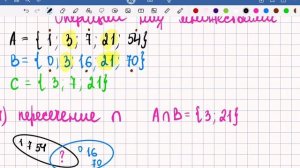 Операции над множествами
A = {1, 3, 7, 21, 54}
B = {0, 3, 16, 21, 70}
C = {3, 7, 21}
) пересечение ∩ A∩B = {3, 21}
1 7 54 ? 0 16
70